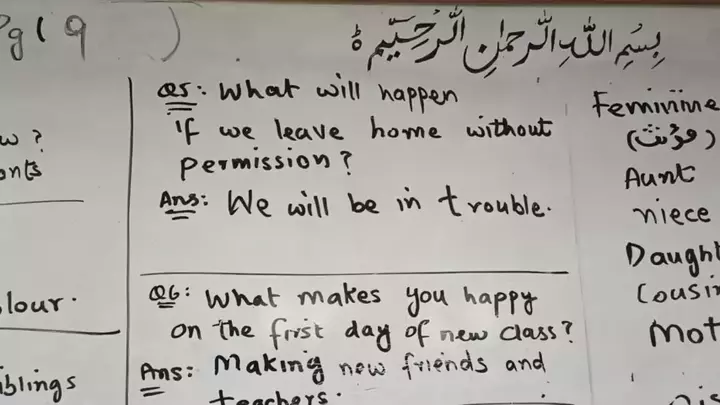 Pg( 9 )
بِسْمِ اللهِ الرَّحْمٰنِ الرَّحِيْمِ
Q5: What will happen
if we leave home without
permission?
Ans: We will be in trouble.
Q6: What makes you happy
on the first day of new class?
Ans: Making new friends and
teachers.
Feminine
(مؤنث)
Aunt
niece
Daught
Cousin
Mot
w?
onts
lour.
iblings